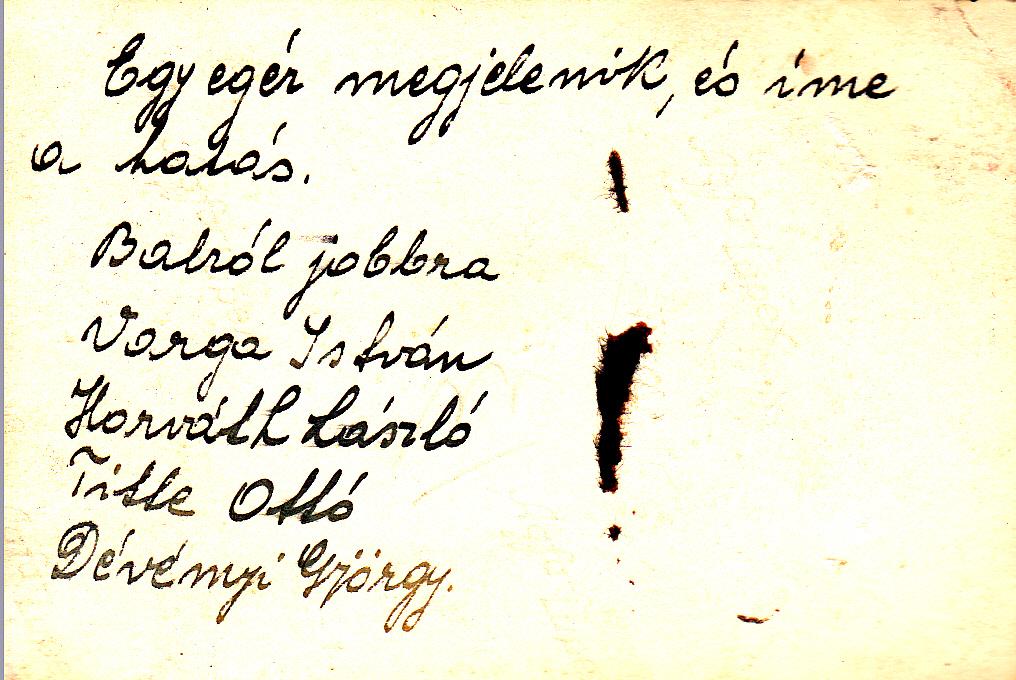 Egy egér megjelenik, és íme
a hatás.
Balról jobbra
Varga István
Horváth László
Title Ottó
Dévényi György.